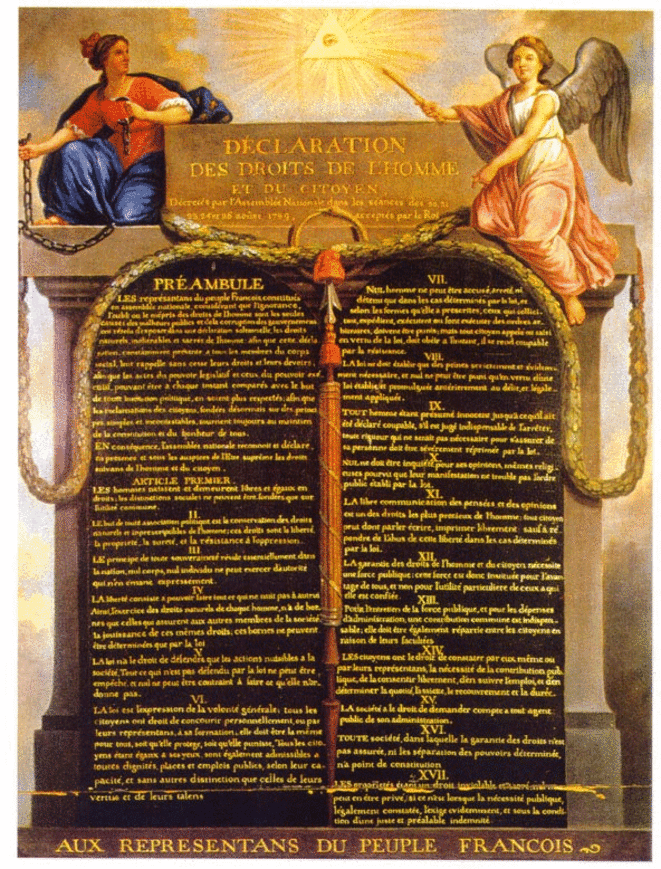 DÉCLARATION
DES DROITS DE L'HOMME
ET DU CITOYEN
Décrétés par l'Assemblée Nationale dans les séances des 20. 21
23. 24 et 26 août 1789, acceptés par le Roi
PRÉAMBULE
LES représentans du peuple François, constitués
en assemblée nationale, considérant que l'ignorance,
l'oubli ou le mépris des droits de l'homme sont les seules
causes des malheurs publics et de la corruption des gouvernemens
ont résolu d'exposer dans une déclaration solemnelle, les droits
naturels, inaliénables et sacrés de l'homme; afin que cette décla
ration, constamment présente a tous les membres du corps
social, leur rappelle sans cesse leurs droits et leurs devoirs;
afin que les actes du pouvoir législatif et ceux du pouvoir exé
cutif, pouvant être a chaque instant comparés avec le but
de toute institution politique, en soient plus respectés; afin que
les reclamations des citoyens, fondées désormais sur des princi
pes simples et incontestables, tournent toujours au maintien
de la constitution et du bonheur de tous.
EN conséquence, l'assemblée nationale reconnoit et déclare,
en presence et sous les auspices de l'Etre suprême les droits
suivans de l'homme et du citoyen.
ARTICLE PREMIER.
LES hommes naissent et demeurent libres et égaux en
droits; les distinctions sociales ne peuvent être fondées que sur
l'utilité commune.
II.
LE but de toute association politique est la conservation des droits
naturels et imprescriptibles de l'homme; ces droits sont la liberté,
la propriété, la sureté, et la résistance à l'oppression.
III.
LE principe de toute souveraineté réside essentiellement dans
la nation, nul corps, nul individu ne peut exercer d'autorité
qui n'en émane expressément.
IV.
LA liberté consiste a pouvoir faire tout ce qui ne nuit pas à autrui
Ainsi, l'exercice des droits naturels de chaque homme, n'a de bor-
nes que celles qui assurent aux autres membres de la société
la jouissance de ces mêmes droits; ces bornes ne peuvent
être déterminées que par la loi
V.
LA loi n'a le droit de défendre que les actions nuisibles a la
société. Tout ce qui n'est pas défendu par la loi ne peut être
empêché, et nul ne peut être contraint à faire ce qu'elle n'or-
donne pas.
VI.
LA loi est l'expression de la volonté générale; tous les
citoyens ont droit de concourir personnellement, ou par
leurs représentans, à sa formation; elle doit être la même
pour tous, soit qu'elle protege, soit qu'elle punisse, Tous les cito
yens étant égaux à ses yeux, sont également admissibles a
toutes dignités, places et emplois publics, selon leur ca-
pacité, et sans autres distinction que celles de leurs
vertus et de leurs talens
VII.
NUL homme ne peut être accusé, arreté ni
détenu que dans les cas déterminés par la loi, et
selon les formes qu'elle a prescrites, ceux qui sollici-
tent, expédient, exécutent ou font exécuter des ordres ar-
bitraires, doivent être punis; mais tout citoyen appelé ou saisi
en vertu de la loi, doit obéir a l'instant, il se rend coupable
par la résistance.
VIII.
LA loi ne doit établir que des peines strictement et évidem-
ment nécessaire, et nul ne peut être puni qu'en vertu d'une
loi établie et promulguée antérieurement au délit, et légale-
ment appliquée.
IX.
TOUT homme étant présumé innocent jusqu'à ce qu'il ait
été déclaré coupable, s'il est jugé indispensable de l'arrêter,
toute rigueur qui ne serait pas nécessaire pour s'assurer de
sa personne doit être sévèrement réprimée par la loi.
X.
NUL ne doit être inquiété pour ses opinions, mêmes religi-
euses pourvu que leur manifestation ne trouble pas l'ordre
public établi par la loi.
XI.
LA libre communication des pensées et des opinions
est un des droits les plus precieux de l'homme; tout citoyen
peut donc parler écrire, imprimer librement; sauf à ré-
pondre de l'abus de cette liberté dans les cas déterminés
par la loi.
XII.
LA garantie des droits de l'homme et du citoyen nécessite
une force publique; cette force est donc instituée pour l'avan-
tage de tous, et non pour l'utilité particuliere de ceux a qui
elle est confiée.
XIII.
POUR l'entretien de la force publique, et pour les dépenses
d'administration, une contribution commune est indispen-
sable; elle doit être également répartie entre les citoyens en
raison de leurs facultées
XIV.
LES citoyens ont le droit de constater par eux même ou
par leurs représentans, la nécessité de la contribution pub-
lique, de la consentir librement, d'en suivre l'emploi, et d'en
déterminer la quotité, l'assiette, le recouvrement et la durée.
XV.
LA société a le droit de demander compte a tout agent
public de son administration.
XVI.
TOUTE société, dans laquelle la garantie des droits n'est
pas assuré, ni les séparation des pouvoirs déterminée,
n'a point de constitution
XVII.
LES propriétés étant un droit inviolable et sacré, nul ne
peut en être privé, si ce n'est lorsque la nécessité publique,
légalement constatée, l'exige evidemment, et sous la condi-
tion d'une juste et préalable indemnité.
AUX REPRESENTANS DU PEUPLE FRANCOIS